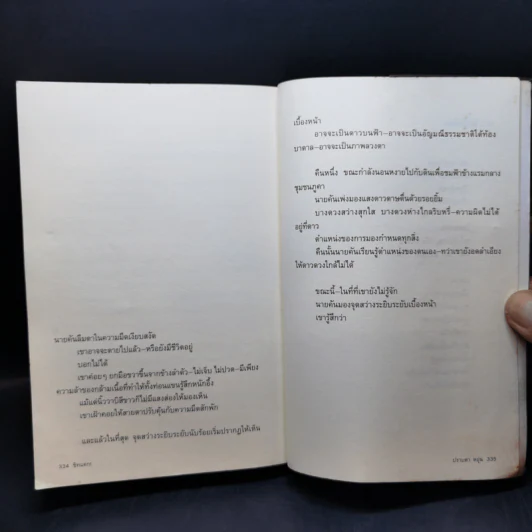 นายคันลืมตาในความมืดเงียบสงัด
เขาอาจจะตายไปแล้ว—หรือยังมีชีวิตอยู่
บอกไม่ได้
เขาค่อยๆ ยกมือขวาขึ้นจากข้างลำตัว—ไม่เจ็บ ไม่ปวด—มีเพียง
ความล้าของกล้ามเนื้อที่ทำให้ทั้งท่อนแขนรู้สึกหนักอึ้ง
แม้แต่นิ้ววาบีสีขาวก็ไม่มีแสงส่องให้มองเห็น
เขาเฝ้าคอยให้สายตาปรับคุ้นกับความมืดสักพัก
และแล้วในที่สุด จุดสว่างระยิบระยับนับร้อยเริ่มปรากฏให้เห็น
334 ชิตะแคระ
เบื้องหน้า
อาจจะเป็นดาวบนฟ้า—อาจจะเป็นอัญมณีธรรมชาติใต้ท้อง
บาดาล—อาจจะเป็นภาพลวงตา
คืนหนึ่ง ขณะกำลังนอนหงายไปกับดินเพื่อชมฟ้าข้างแรมกลาง
ขุนเขาภูคา
นายคันเพ่งมองแสงดาวดาษดื่นด้วยรอยยิ้ม
บางดวงสว่างสุกใส บางดวงห่างไกลริบหรี่—ความผิดไม่ได้
อยู่ที่ดาว
ตำแหน่งของการมองกำหนดทุกสิ่ง
คืนนั้นนายคันเรียนรู้ตำแหน่งของตนเอง—ทว่าเขายังอดลำเอียง
ให้ดาวดวงใกล้ไม่ได้
ขณะนี้—ในที่ที่เขายังไม่รู้จัก
นายคันมองจุดสว่างระยิบระยับเบื้องหน้า
เขารู้สึกว่า
ปราบดา หยุ่น 335